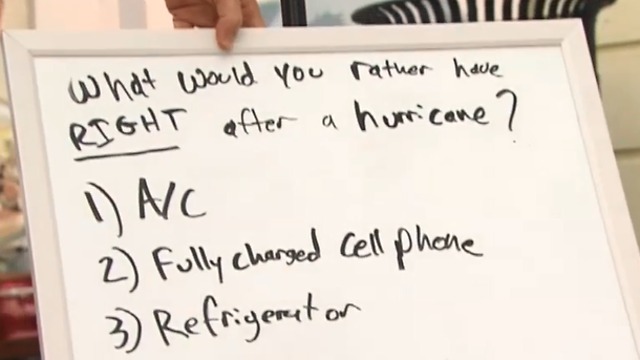 What would you rather have
RIGHT after a hurricane?
1) A/C
2) Fully charged cell phone
3) Refrigerator